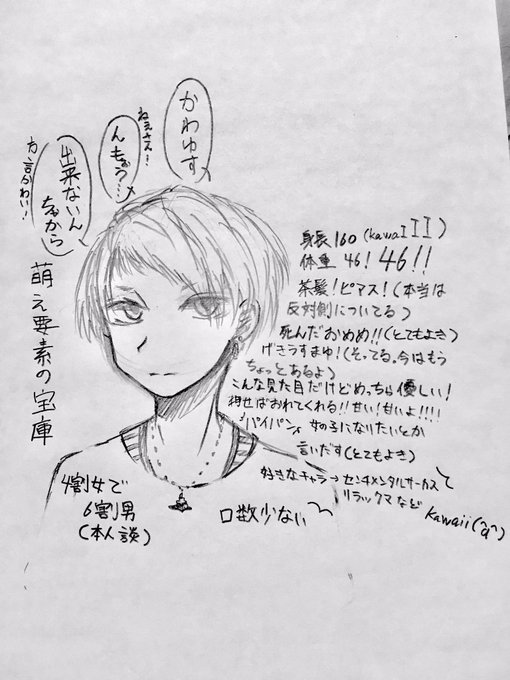 かわゆす
んもぅ…
ねえさん!
出来ないん
ちゃから
方言かわい!
萌え要素の宝庫
身長160(kawaIII)
体重 46! 46!!
茶髪!ピアス!(本当は
反対側についてる)
死んだおめめ!!(とてもよき)
げきうすまゆ!(そってる。今はもう
ちょっとあるよ)
こんな見た目だけどめっちゃ優しい!
押せばおれてくれる!!甘い!甘いよ!!!!
"パイパン" 女の子になりたいとか
言いだす(とてもよき)
好きなキャラ→センチメンタルサーカス
リラックマなど
kawaii(^q^)
口数少ない
4割女で
6割男
(本人談)